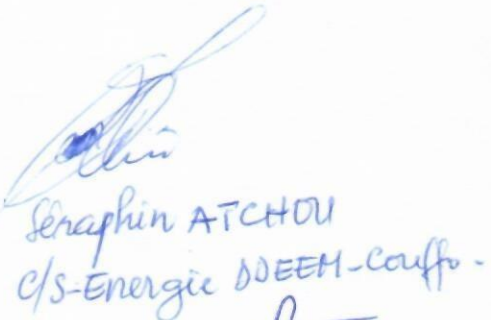 Séraphin ATCHOU
C/S-Energie DDEEM-Couffo.